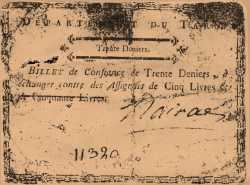 DÉPARTEMENT DU TARN
Trente Deniers.
BILLET de Confiance de Trente Deniers, à
échanger contre des Assignats de Cinq Livres &
Cinquante Livres.
11320